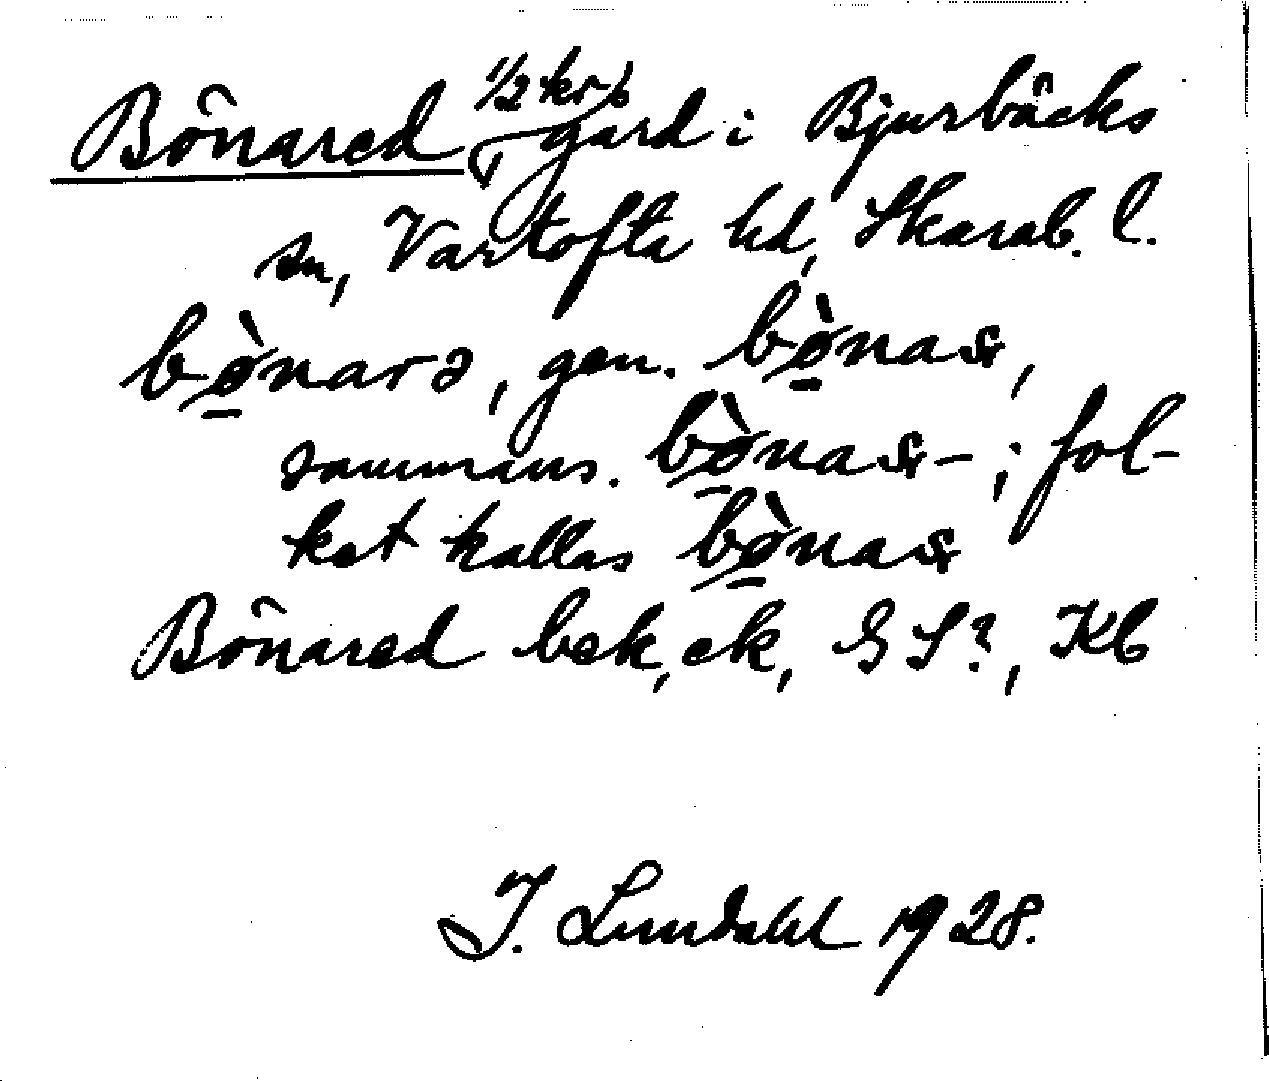 Bönared 1/2 kr gård i Bjurbäcks
sn, Vartofta hd, Skarab. l.
bø̀narə, gen. bø̀nas,
sammans. bø̀nas-; fol-
ket kallas bø̀nas
Bönared bek, ek, GS?, Kb
I. Lundahl 1928.